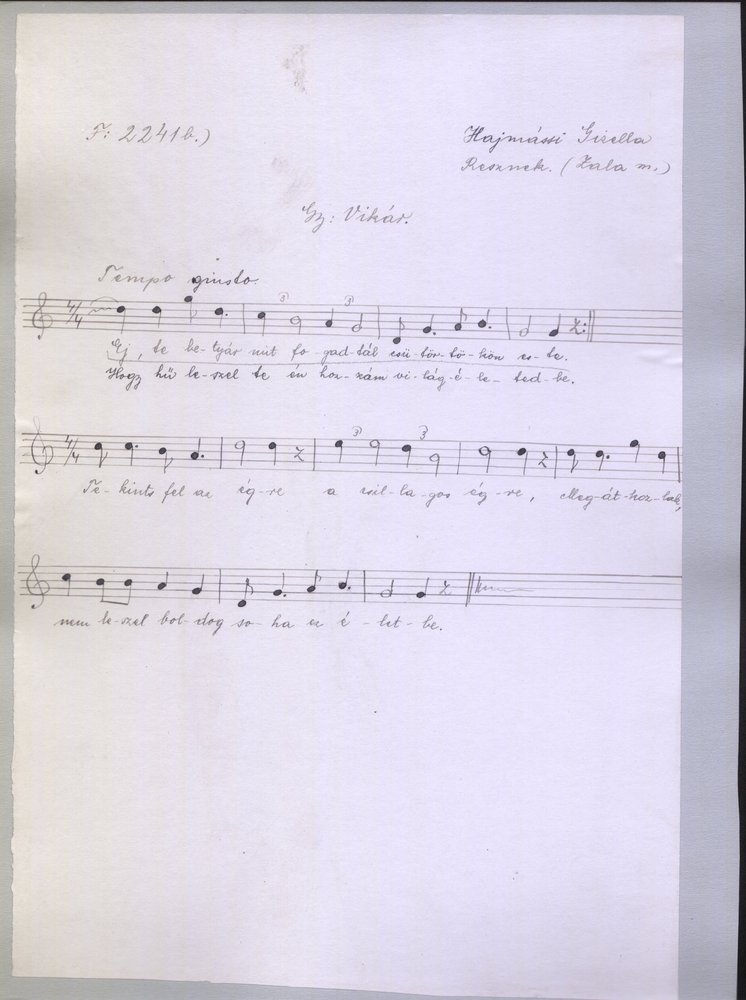 F: 2241b.)
Hajmássi Gizella
Resznek. (Zala m.)
Gy: Vikár.
Tempo giusto.
4/4 3 3
Ej, te be-tyár mit fo-gad-tál csü-tör-tö-kön es-te.
Hogy hű le-szel te én hoz-zám vi-lág-é-le-ted-be.
4/4 3 3
Te-kints fel az ég-re a csil-la-gos ég-re, Meg-át-koz-lak,
nem le-szel bol-dog so-ha ez é-let-be.